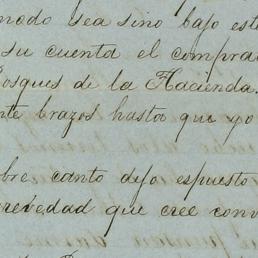 modo sea sino bajo este
su cuenta el comprad
Bosques de la Hacienda.
nte brazos hasta que yo
bre canto dejo espuesto
brevedad que cree conv